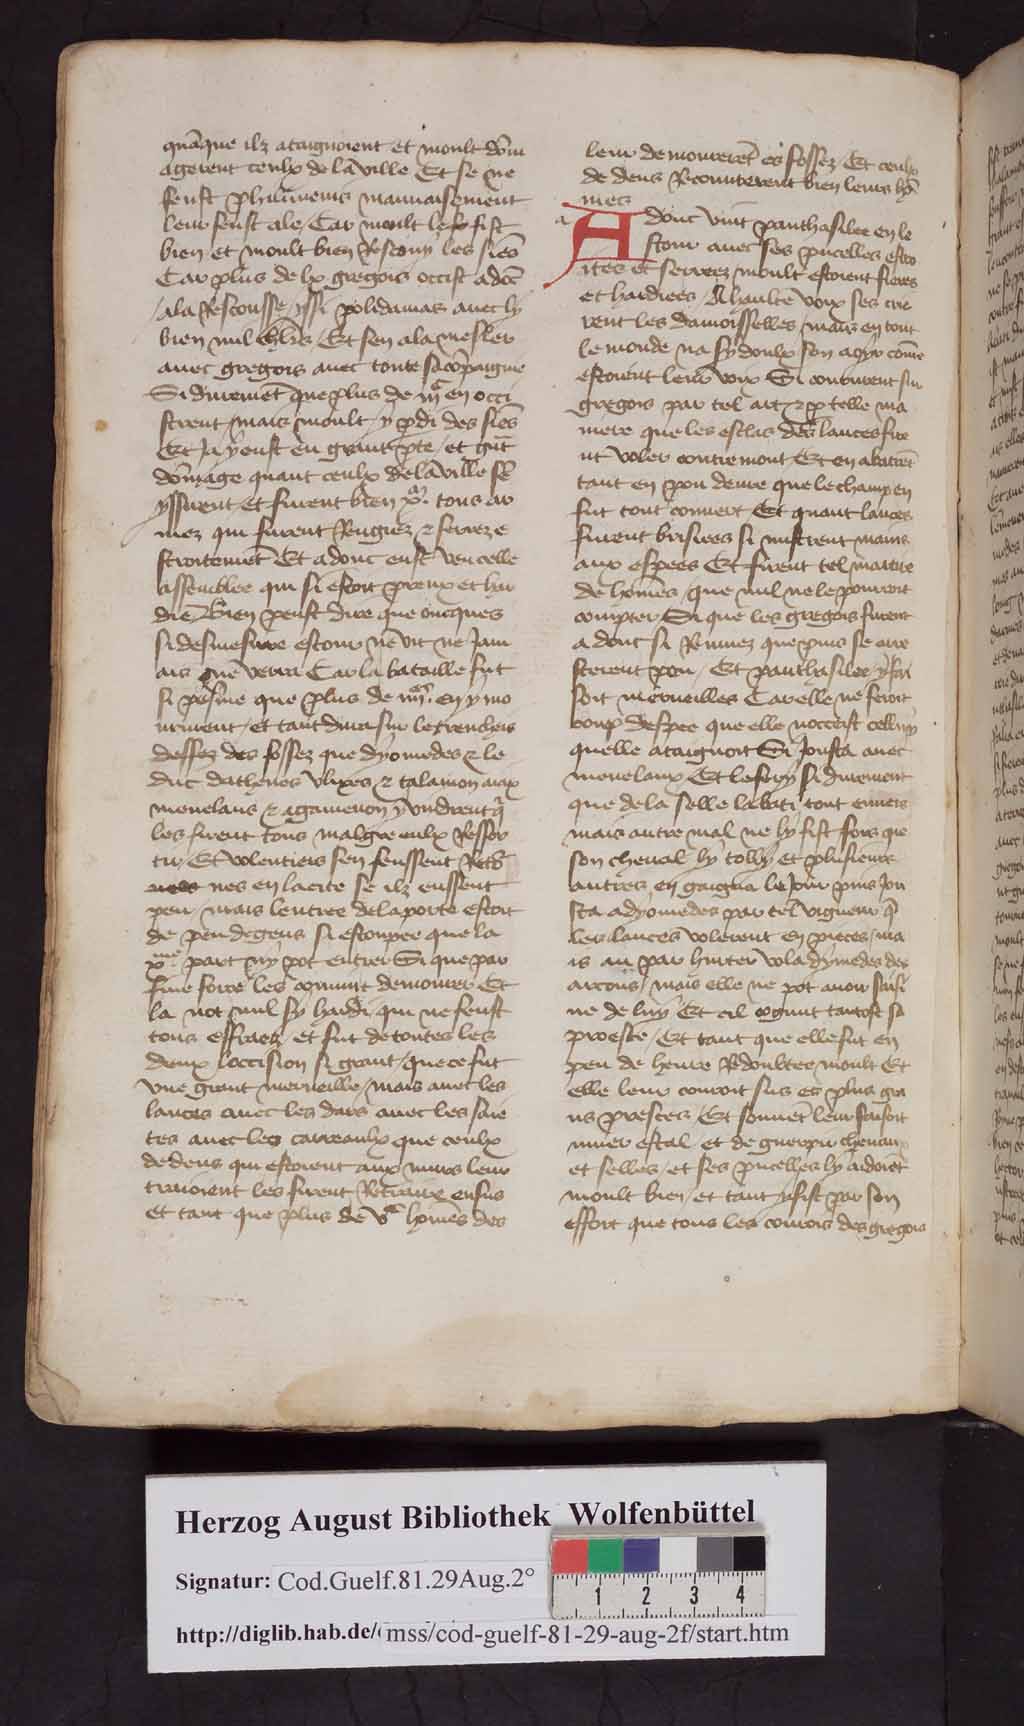 quāque ilz ataignoient et moult dōm
agerent ceulx de la ville Et se ne
feust philimenis mauuaisement
leur feust ale Car moult le fist
bien et moult bien Rescouy les siēs
Car plus de lx gregois occist adōc
ala Rescousse yssi polidamas auec ly
bien mil chlrs Et sen ala mesler
auec gregois auec toute sa cōpaignie
Si duremēt que plus de en occi
strent mais moult y pdi des siēs
Et Ja y eust eu grant pte et gnt
dōmage quant ceulx de la ville sē
yssirent et furent bien tous ar
mez qui furent Rengiez & serrez e
stroitemēt Et adonc eust veu celle
assemblee qui si estoit preux et har
die Bien peust dire que oncques
si desmesure estour ne vit ne Jam
ais ne verra Car la bataille fut
si que plus de en y mo
rurent et tant dura sur le trencheis
des fossez que dyomedes & le
duc dathenes vlixes & talamon aiax
menelaus & agamenon y vindrent q̄
les firent tous malgre eulx Ressor
tir Et volentiers sen feussent Retor
nes en la cite se ilz eussent
peu mais lentree de la porte estoit
de peu de gens si estoupee que la
xme part ny pot entrer Si que par
fine force les conuint demourer Et
la not nul sy hardi qui ne feust
tous effraez et fut de toutes les
deux loccision si grant que ce fut
vne grant merueille mais auec les
lances auec les dars auec les saie
tes auec les carreaulx que ceulx
dedens qui estoient aux murs leur
traioient les firent Retraire ensus
et tant que plus de vc hōmes des
leur demourerēt es fossez Et ceulx
de dens Recouurerent bien leurs hō
mes
a
Adonc vint panthasilee en le
stour auec ses pucelles estro
ites et serrees moult estoient fieres
et hardiees A haulte voix ses crie
rent les damoisselles mais en tout
le monde na sy doulx son a oyr cōme
estoient leurs voix Si coururent sur
gregois par tel air & p telle ma
niere que les esclas des lances fire
nt voler contremont Et en abatirēt
tant en pou deure que le champ en
fut tout couuert Et quant lances
furent brisiees si mistrent mains
aux espees Et firent tel martire
de hōmes que nul ne le pourroit
compter Si que les gregois furent
a donc si Remuez que puis se arre
sterent pou Et panthasilee y fai
soit merueilles Car elle ne feroit
coup despee que elle noccist celluy
quelle ataignoit Si Jousta auec
menelaux Et le fery si durement
que de la selle labati tout enuers
mais autre mal ne ly fist fors que
son cheual ly tolly et plusieurs
autres en gaigna le Jour puis Jou
sta a dyomedes par tel vigueur q̄
les lances volerent en pieces ma
is au par hurter vola dyomedes des
arcons mais elle ne pot auoir saisi
ne de luy Et cil conuint tantost sa
proesce Et tant que elle fut en
peu de heure Redoubtee moult Et
elle leur couroit sus es plus gra
ns presces Et souuēt leur faisoit
muer estal et de guerpir cheuaux
et selles et ses pucelles ly aidoiēt
moult bien et tant y fist par son
effort que tous les conrois des gregois
Herzog August Bibliothek Wolfenbüttel
Signatur: Cod.Guelf.81.29Aug.2°
1 2 3 4
http://diglib.hab.de/mss/cod-guelf-81-29-aug-2f/start.htm